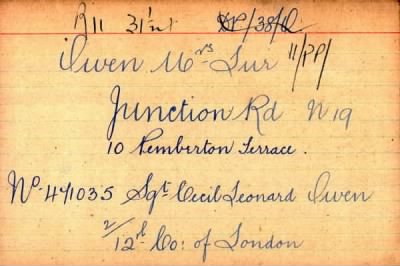 R11 31st /38/
Owen Mrs 11/PP/
Junction Rd N19
10 Pemberton Terrace.
No 471035 Sgt Cecil Leonard Owen
2/12th Co: of London